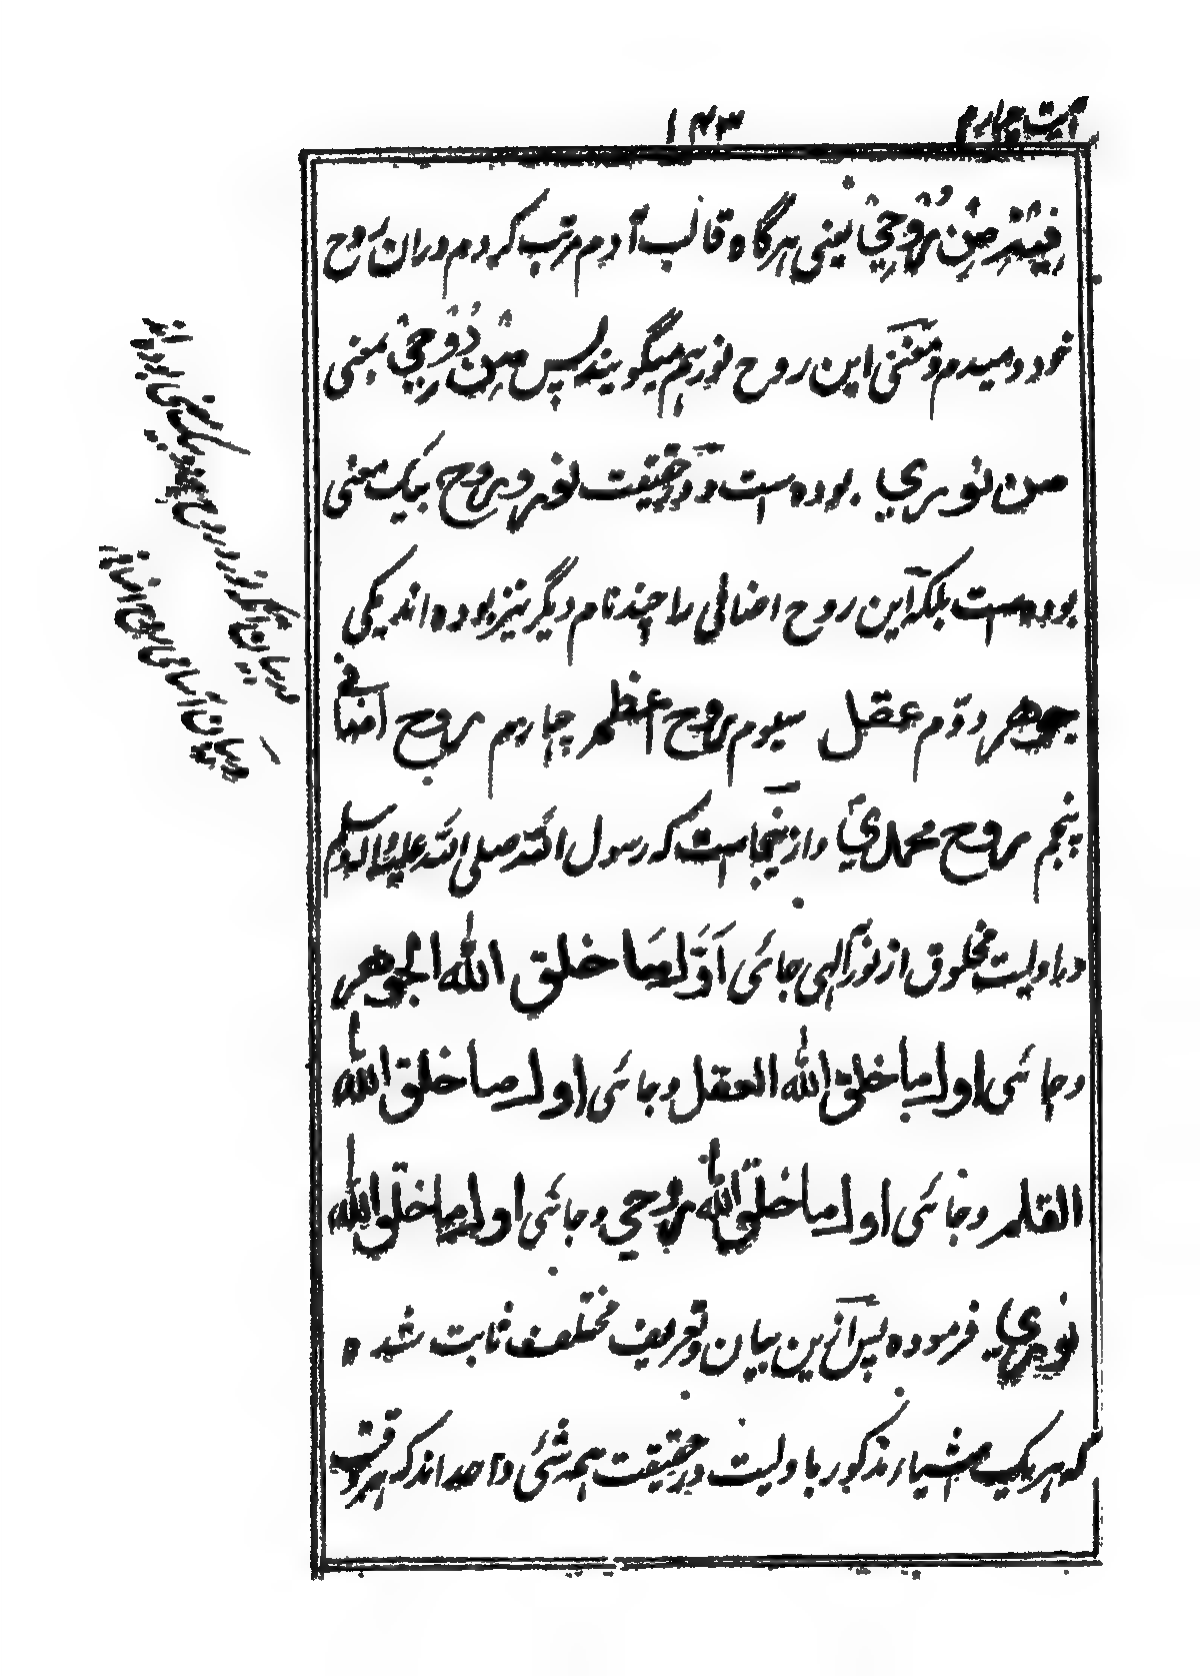 آیت چهارم ۱۴۳
فِیْهِ مِنْ رُّوْحِیْ یعنی هرگاه قالب آدم مرتب کردم و دران روح
خود دمیدم و معنی این روح نور هم میگویند پس مِنْ رُوْحِیْ بمعنی
من نوری بوده است و در حقیقت نور و روح بیک معنی
بوده است بلکه این روح اضافی را چند نام دیگر نیز بوده اند یکی
جوهر دوّم عقل سیوم روح اعظم چهارم روح اضافی
پنجم روح محمدیؐ و ازینجاست که رسول الله صلی الله علیه و آله و سلم
در اولیت مخلوق از نور الهی جائی اَوَّلُ ما خلق الله الجوهر
و جائی اول ما خلق الله العقل و جائی اول ما خلق الله
القلم و جائی اول ما خلق الله روحی و جائی اول ما خلق الله
نوری فرموده پس ازین بیان و تعریف مختلف ثابت شده
که هر یک اشیاء مذکور با ولیت در حقیقت همه شئی واحد اند که هر وقت
در بیان آنکه نور و روح بیک معنی بوده اند
در بیان اسامی روح اضافی